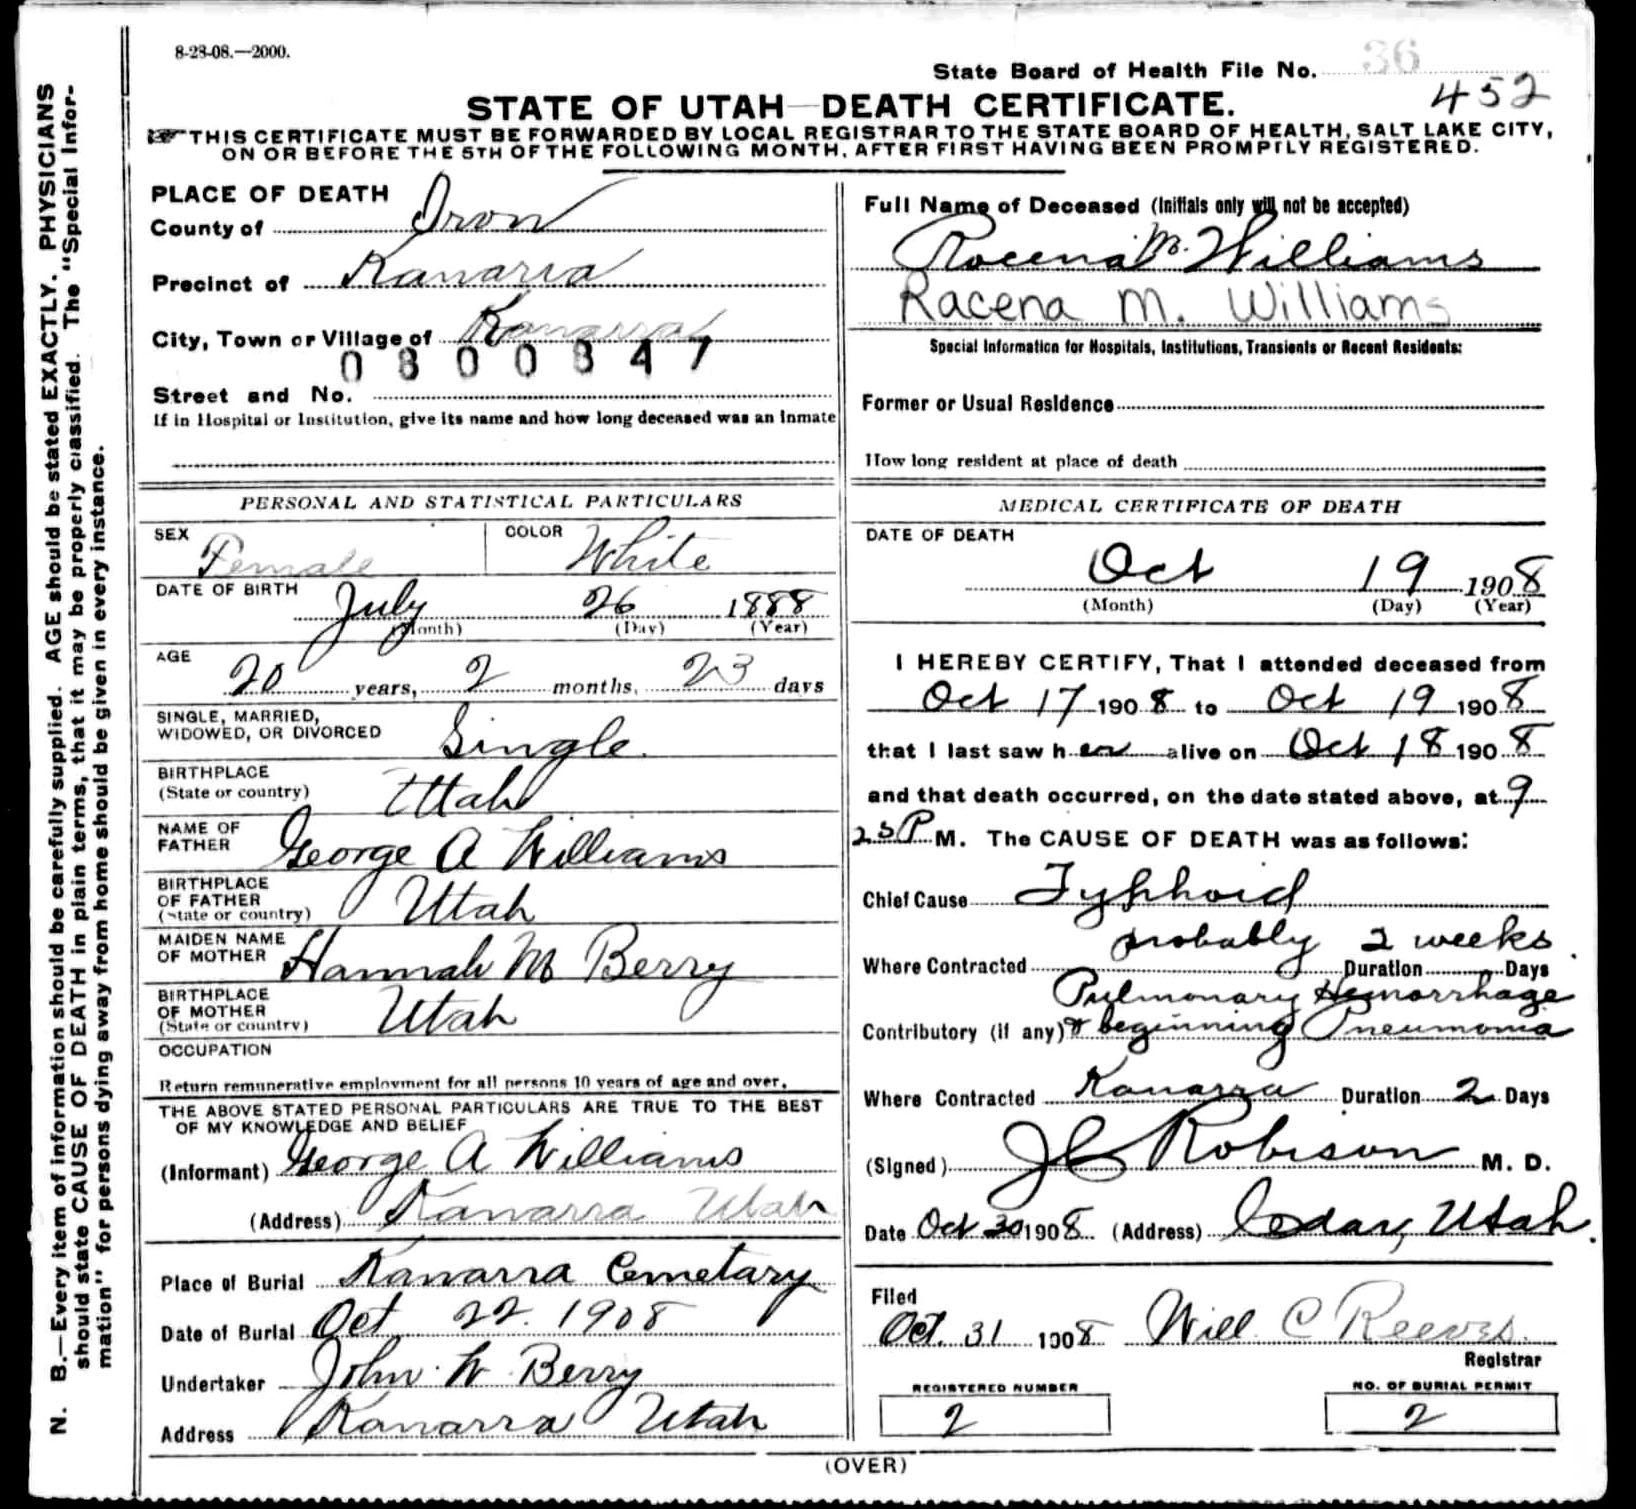 8-28-08.—2000.
State Board of Health File No. 36
452
STATE OF UTAH—DEATH CERTIFICATE.
THIS CERTIFICATE MUST BE FORWARDED BY LOCAL REGISTRAR TO THE STATE BOARD OF HEALTH, SALT LAKE CITY,
ON OR BEFORE THE 5TH OF THE FOLLOWING MONTH, AFTER FIRST HAVING BEEN PROMPTLY REGISTERED.
N. B.—Every item of information should be carefully supplied. AGE should be stated EXACTLY. PHYSICIANS
should state CAUSE OF DEATH in plain terms, that it may be properly classified. The "Special Infor-
mation" for persons dying away from home should be given in every instance.
PLACE OF DEATH
County of Iron
Precinct of Kanarra
City, Town or Village of Kanarra
0300347
Street and No.
If in Hospital or Institution, give its name and how long deceased was an Inmate
PERSONAL AND STATISTICAL PARTICULARS
SEX Female COLOR White
DATE OF BIRTH July 26 1888
(Month) (Day) (Year)
AGE 20 years, 2 months, 23 days
SINGLE, MARRIED,
WIDOWED, OR DIVORCED Single.
BIRTHPLACE
(State or country) Utah
NAME OF
FATHER George A Williams
BIRTHPLACE
OF FATHER
(State or country) Utah
MAIDEN NAME
OF MOTHER Hannah M Berry
BIRTHPLACE
OF MOTHER
(State or country) Utah
OCCUPATION
Return remunerative employment for all persons 10 years of age and over.
THE ABOVE STATED PERSONAL PARTICULARS ARE TRUE TO THE BEST
OF MY KNOWLEDGE AND BELIEF
(Informant) George A Williams
(Address) Kanarra Utah
Place of Burial Kanarra Cemetary
Date of Burial Oct 22. 1908
Undertaker John W Berry
Address Kanarra Utah
Full Name of Deceased (Initials only will not be accepted)
Rocena M. Williams
Racena M. Williams
Special Information for Hospitals, Institutions, Transients or Recent Residents:
Former or Usual Residence
How long resident at place of death
MEDICAL CERTIFICATE OF DEATH
DATE OF DEATH
Oct 19 1908
(Month) (Day) (Year)
I HEREBY CERTIFY, That I attended deceased from
Oct 17 1908 to Oct 19 1908
that I last saw her alive on Oct 18 1908
and that death occurred, on the date stated above, at 9
25 P M. The CAUSE OF DEATH was as follows:
Chief Cause Typhoid
probably 2 weeks.
Where Contracted Duration Days
Pulmonary Hemorrhage
Contributory (if any) & beginning Pneumonia
Where Contracted Kanarra Duration 2 Days
(Signed) J C Robison M. D.
Date Oct 30 1908 (Address) Cedar, Utah.
Filed
Oct. 31 1908 Will C Reeves.
Registrar
REGISTERED NUMBER
2
NO. OF BURIAL PERMIT
2
(OVER)